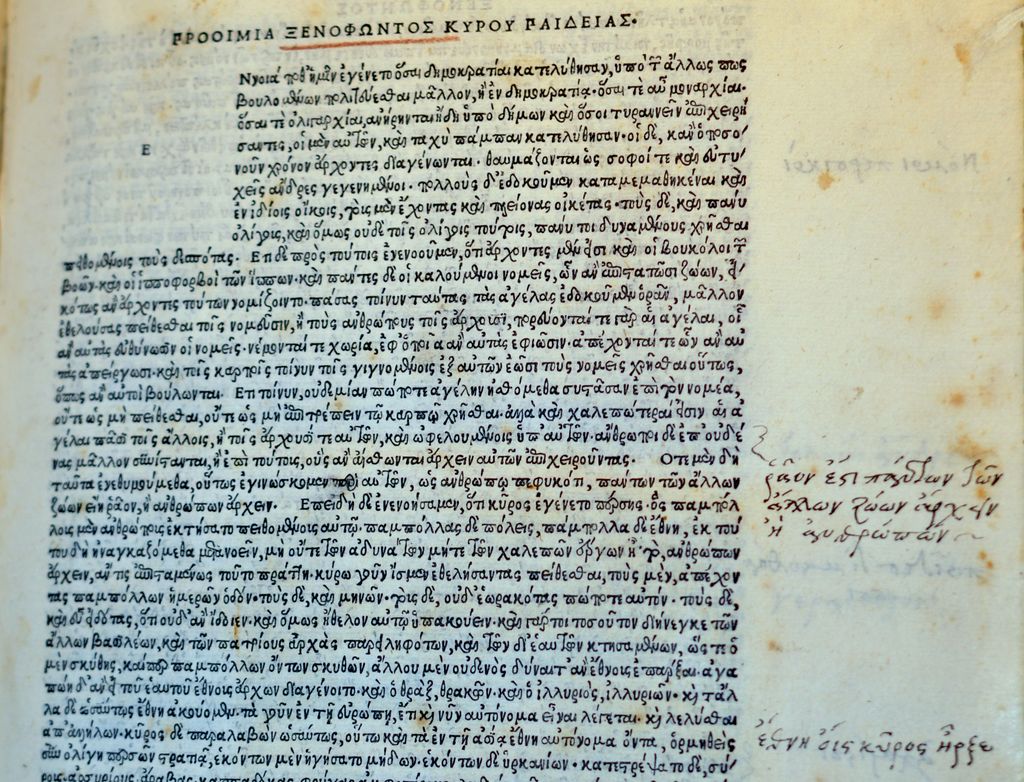 ΠΡΟΟΙΜΙΑ ΞΕΝΟΦΩΝΤΟΣ ΚΥΡΟΥ ΠΑΙΔΕΙΑΣ.
Ννοιά ποθ' ἡμῖν ἐγένετο ὅσαι δημοκρατίαι κατελύθησαν, ὑπὸ τῶν ἄλλως πως
βουλομένων πολιτεύεσθαι μᾶλλον, ἢ ἐν δημοκρατίᾳ· ὅσαι τὲ αὖ μοναρχίαι·
ὅσαι τὲ ὀλιγαρχίαι, ἀνήρηνται ἤδη ὑπὸ δήμων καὶ ὅσοι τυραννεῖν ἐπιχειρή
σαντες, οἱ μὲν αὐτῶν, καὶ ταχὺ πάμπαν κατελύθησαν· οἱ δὲ, κἂν ὁποσο-
Ε
νοῦν χρόνον ἄρχοντες διαγένωνται· θαυμάζονται ὡς σοφοί τε καὶ εὐτυ-
χεῖς ἄνδρες γεγενημένοι. πολλοὺς δ' ἐδοκοῦμεν καταμεμαθηκέναι καὶ
ἐν ἰδίοις οἴκοις, τοὺς μὲν ἔχοντας καὶ πλείονας οἰκέτας· τοὺς δὲ, καὶ πάνυ
ὀλίγους, καὶ ὅμως οὐδὲ τοῖς ὀλίγοις τούτοις, πάνυ τοι δυναμένους χρῆσθαι
πειθομένοις τοὺς δεσπότας. Ἐπὶ δὲ πρὸς τούτοις ἐνενοοῦμεν, ὅτι ἄρχοντες μέν εἰσι καὶ οἱ βουκόλοι τῶν
βοῶν· καὶ οἱ ἱπποφορβοὶ τῶν ἵππων· καὶ πάντες δὲ οἱ καλούμενοι νομεῖς, ὧν ἂν ἐπιστατῶσι ζώων, εἰ
κότως ἂν ἄρχοντες τούτων νομίζοιντο· πάσας τοίνυν ταύτας τὰς ἀγέλας ἐδοκοῦμεν ὁρᾶν, μᾶλλον
ἐθελούσας πείθεσθαι τοῖς νομεῦσιν, ἢ τοὺς ἀνθρώπους τοῖς ἄρχουσι, πορεύονταί τε γὰρ αἱ ἀγέλαι, οἷ
ἂν αὐτὰς εὐθύνωσιν οἱ νομεῖς· νέμονταί τε χωρία, ἐφ' ὁποῖα ἂν αὐτὰς ἐφιῶσιν· ἀπέχονταί τε ὧν ἂν αὐ
τὰς ἀπείργωσι· καὶ τοῖς καρποῖς τοίνυν τοῖς γιγνομένοις ἐξ αὐτῶν ἐῶσι τοὺς νομεῖς χρῆσθαι οὕτως,
ὅπως ἂν αὐτοὶ βούλωνται. Ἔτι τοίνυν, οὐδεμίαν πώποτε ἀγέλην ᾐσθόμεθα συστᾶσαν ἐπὶ τὸν νομέα,
οὔτε ὡς μὴ πείθεσθαι, οὔτε ὡς μὴ ἐπιτρέπειν τῷ καρπῷ χρῆσθαι· ἀλλὰ καὶ χαλεπώτεραί εἰσιν αἱ ἀ
γέλαι πᾶσι τοῖς ἄλλοις, ἢ τοῖς ἄρχουσί τε αὐτῶν, καὶ ὠφελουμένοις ὑπ' αὐτῶν· ἄνθρωποι δὲ ἐπ' οὐδέ
νας μᾶλλον συνίστανται, ἢ ἐπὶ τούτοις, οὓς ἂν αἴσθωνται ἄρχειν αὐτῶν ἐπιχειροῦντας. Ὅτε μὲν δὴ
ταῦτα ἐνεθυμούμεθα, οὕτως ἐγινώσκομεν περὶ αὐτῶν, ὡς ἀνθρώπῳ πεφυκότι, πάντων τῶν ἄλλων
ζώων εἴη ῥᾷον, ἢ ἀνθρώπων ἄρχειν. Ἐπειδὴ δὲ ἐνενοήσαμεν, ὅτι κῦρος ἐγένετο πέρσης· ὃς παμπόλ
λους μὲν ἀνθρώπους ἐκτήσατο πειθομένους αὐτῷ· παμπόλλας δὲ πόλεις, πάμπολλα δὲ ἔθνη, ἐκ τού
του δὴ ἠναγκαζόμεθα μετανοεῖν, μὴ οὔτε τῶν ἀδυνάτων μήτε τῶν χαλεπῶν ἔργων ᾖ τὸ, ἀνθρώπων
ἄρχειν, ἄν τις ἐπισταμένως τοῦτο πράττῃ· κύρῳ γοῦν ἴσμεν ἐθελήσαντας πείθεσθαι, τοὺς μὲν, ἀπέχον
τας παμπόλλων ἡμερῶν ὁδόν· τοὺς δὲ, καὶ μηνῶν· τοὺς δὲ, οὐδ' ἑωρακότας πώποτε αὐτόν· τοὺς δὲ,
καὶ εὖ εἰδότας, ὅτι οὐδ' ἂν ἴδοιεν· καὶ ὅμως ἤθελον αὐτῷ ὑπακούειν· καὶ γάρ τοι τοσοῦτον διήνεγκε τῶν
ἄλλων βασιλέων, καὶ τῶν πατρίους ἀρχὰς παρειληφότων, καὶ τῶν δι' ἑαυτῶν κτησαμένων, ὥς τε ὁ
μὲν σκύθης, καίπερ παμπόλλων ὄντων σκυθῶν, ἄλλου μὲν οὐδενὸς δύναιτ' ἂν ἔθνους ἐπάρξαι· ἀγα
πῴη δ' ἂν εἰ τοῦ ἑαυτοῦ ἔθνους ἄρχων διαγένοιτο· καὶ ὁ θρᾷξ, θρᾳκῶν· καὶ ὁ ἰλλυριὸς, ἰλλυριῶν· καὶ τἄλ
λα δὲ ὡσαύτως ἔθνη ἀκούομεν. τὰ γοῦν ἐν τῇ εὐρώπῃ, ἔτι καὶ νῦν αὐτόνομα εἶναι λέγεται· καὶ λελύσθαι
ἀπ' ἀλλήλων· κῦρος δὲ παραλαβὼν ὡσαύτως, οὕτω καὶ τὰ ἐν τῇ ἀσίᾳ ἔθνη αὐτόνομα ὄντα, ὁρμηθεὶς
σὺν ὀλίγῃ περσῶν στρατιᾷ, ἑκόντων μὲν ἡγήσατο μήδων, ἑκόντων δὲ ὑρκανίων· κατεστρέψατο δὲ, σύ-
ρους, ἀσσυρίους, ἄραβας, καππαδόκας, φρύγας
ῥᾷον ἐστὶ πάντων τῶν
ἄλλων ζώων ἄρχειν
ἢ ἀνθρώπων
ἔθνη οἷς κῦρος ἦρξε